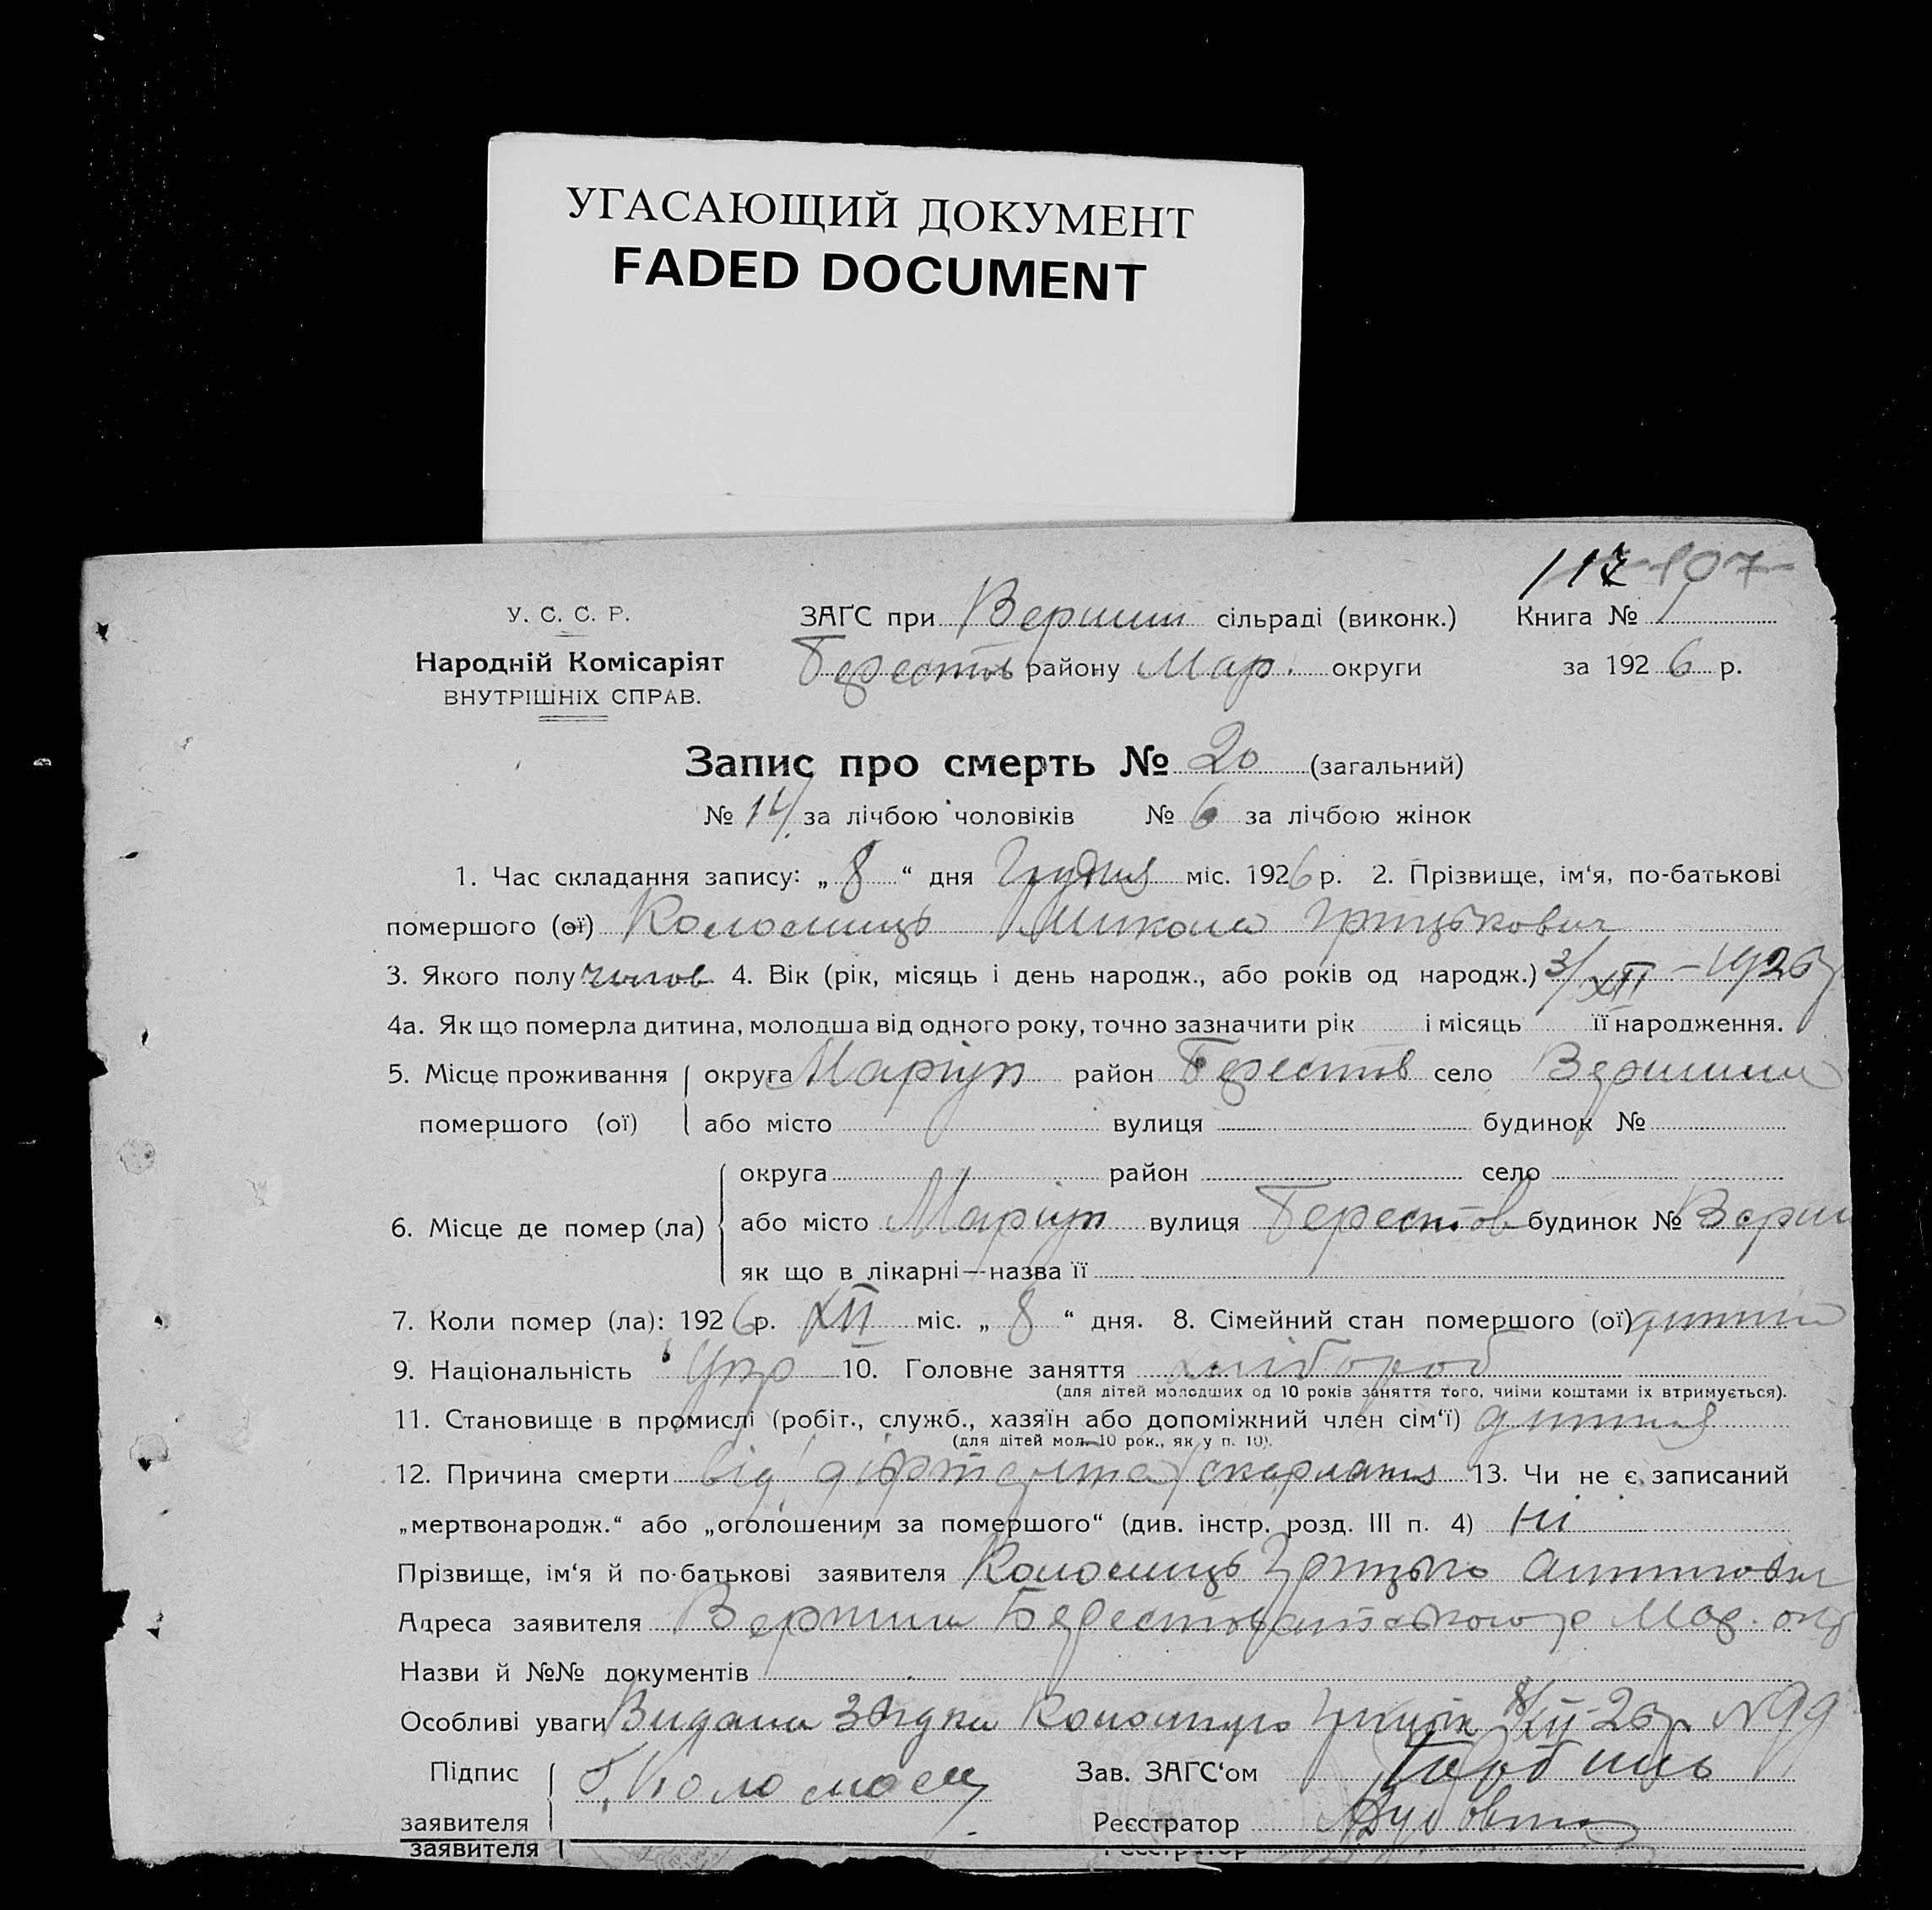 УГАСАЮЩИЙ ДОКУМЕНТ
FADED DOCUMENT
107
У. С. С. Р.
Народній Комісаріят
ВНУТРІШНІХ СПРАВ.
ЗАГС при Вершин сільраді (виконк.) Книга № 1
Берестов району Мар. округи за 1926 р.
Запис про смерть № 20 (загальний)
№ 14 за лічбою чоловіків № 6 за лічбою жінок
1. Час складання запису: „ 8 “ дня Грудня міс. 1926 р. 2. Прізвище, ім‘я, по-батькові
помершого (ої) Коломиець Микола Грицькович
3. Якого полу чолов 4. Вік (рік, місяць і день народж., або років од народж.) 3/XII – 1926р
4а. Як що померла дитина, молодша від одного року, точно зазначити рік і місяць її народження.
5. Місце проживання округа Маріуп район Берестов село Вершини
помершого (ої) або місто вулиця будинок №
округа район село
6. Місце де помер (ла) або місто Маріуп вулиця Берестов будинок № Верши
як що в лікарні—назва її
7. Коли помер (ла): 1926 р. XII міс. „ 8 “ дня. 8. Сімейний стан помершого (ої) дитина
9. Національність Укр 10. Головне заняття хлібороб
(для дітей молодших од 10 років заняття того, чиїми коштами їх втримується).
11. Становище в промислі (робіт., служб., хазяїн або допоміжний член сім‘ї) дитина
(для дітей мол. 10 рок., як у п. 10).
12. Причина смерти від скарлати 13. Чи не є записаний
„мертвонародж.“ або „оголошеним за помершого“ (див. інстр. розд. III п. 4) Ні
Прізвище, ім‘я й по-батькові заявителя Коломиець Грицько
Адреса заявителя Вершини р Мар. окр
Назви й №№ документів
Особливі уваги Видана 8/XII-26р N 99
Підпис Зав. ЗАГС‘ом
заявителя Г. Коломоец Реєстратор
заявителя